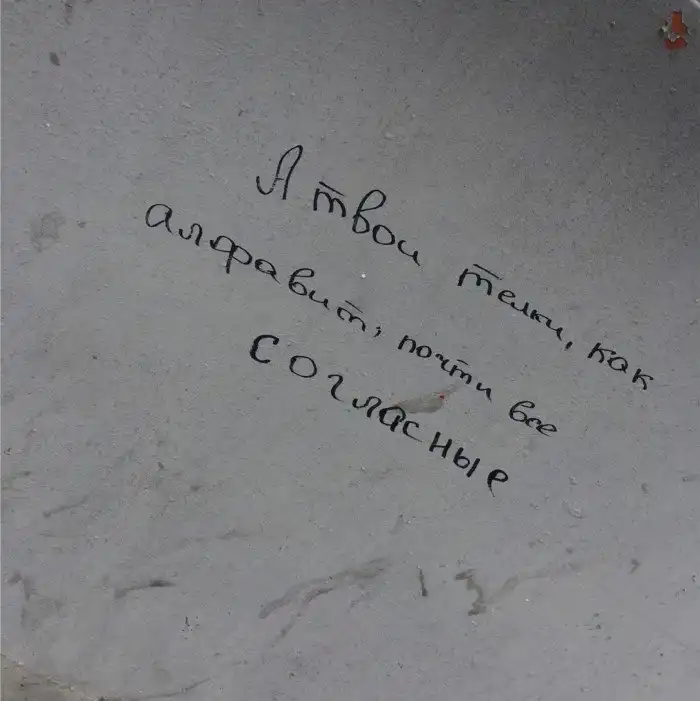 А твои телки, как
алфавит, почти все
согласные